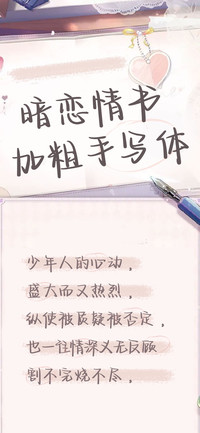 暗恋情书
加粗手写体
少年人的心动，
盛大而又热烈，
纵使被质疑被否定，
也一往情深义无反顾
割不完烧不尽。